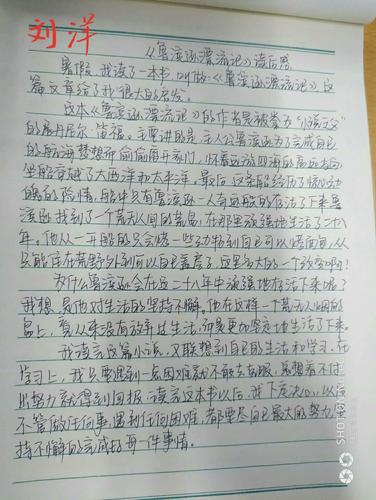 刘洋
《鲁滨逊漂流记》读后感
暑假,我读了一本书,叫做《鲁滨逊漂流记》,这
篇文章给了我很大的启发。
这本《鲁滨逊漂流记》的作者是被誉为"小说之父"
的丹尼尔·笛福。主要讲的是,主人公鲁滨逊为了完成自己
的航海梦想而偷偷离开家门,怀着远游四海的高远志向,
坐船穿越了大西洋和太平洋。最后,这条船经历了惊心动
魄的险情,船中只有鲁滨逊一人奇迹般的存活了下来。鲁
滨逊找到了一个荒无人间的荒岛,在那里顽强地生活了二十八
年。他从一开始的只会烤一些动物到自己可以烤面包,从
只能住在荒野外到可以自己盖房子,这是多大的一个改变啊!
为什么鲁滨逊会在这二十八年中顽强地存活下来呢?
我想,是他对生活的坚持不懈。他在这样一个荒无人烟的
岛上,看从来没有放弃过生活,而是更加坚定地生活了下来。
我读完这篇小说,又联想到自己的生活和学习。在
学习上,我只要遇到一点困难就不敢去克服,总想着不付
出努力就得到回报。读完这本书以后,我下定决心,以后
不管做任何事,遇到任何困难,都要尽自己最大的努力,坚
持不懈的完成好每一件事情。
SHOT ON